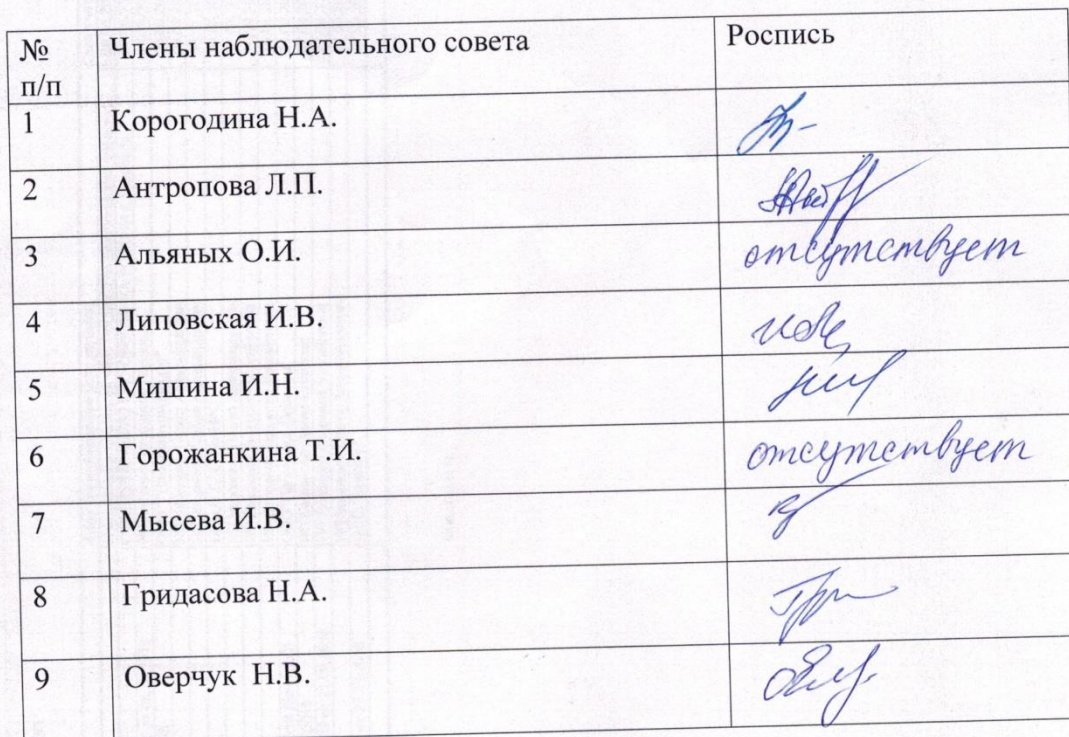 № п/п Члены наблюдательного совета Роспись
1 Корогодина Н.А.
2 Антропова Л.П.
3 Альяных О.И. отсутствует
4 Липовская И.В.
5 Мишина И.Н.
6 Горожанкина Т.И. отсутствует
7 Мысева И.В.
8 Гридасова Н.А.
9 Оверчук Н.В.